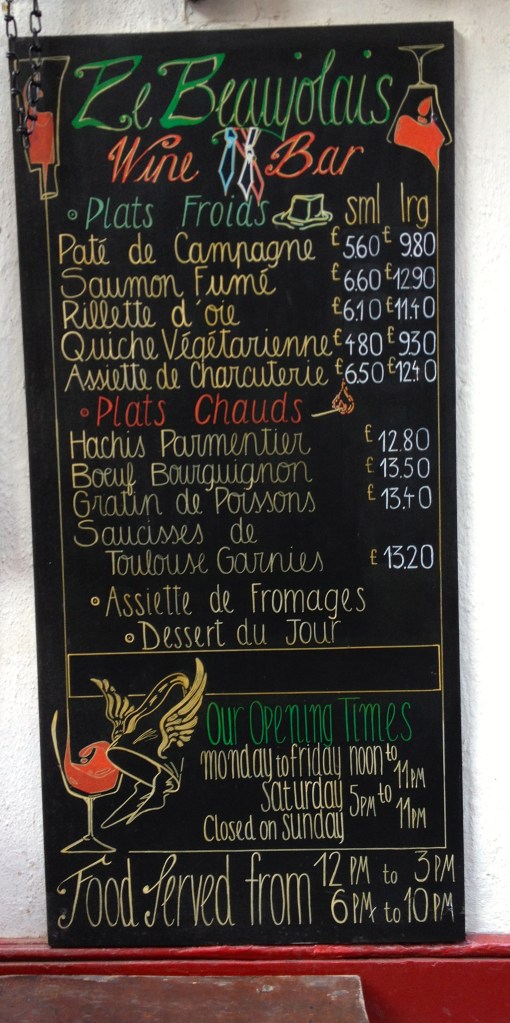 Le Beaujolais
Wine Bar
Plats Froids sml lrg
Paté de Campagne £5.60 £9.80
Saumon Fumé £6.60 £12.90
Rillette d'oie £6.10 £11.40
Quiche Végétarienne £4.80 £9.30
Assiette de Charcuterie £6.50 £12.40
Plats Chauds
Hachis Parmentier £12.80
Bœuf Bourguignon £13.50
Gratin de Poissons £13.40
Saucisses de
Toulouse Garnies £13.20
Assiette de Fromages
Dessert du Jour
Our Opening Times
monday to friday noon to 11PM
saturday 5PM to 11PM
Closed on sunday
Food Served from 12 PM to 3 PM
6 PM to 10 PM